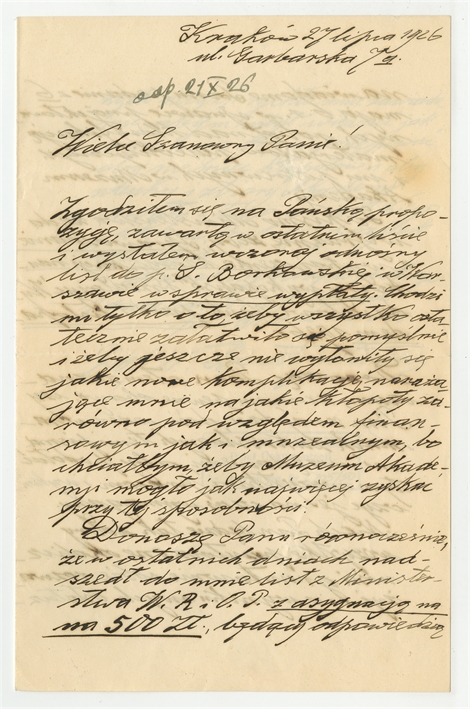 Kraków 27 lipca 1926
ul. Garbarska 7a.
odp 21 X 26
Wielce Szanowny Panie!
Zgodziłem się na Pańską propo-
zycję, zawartą w ostatnim liście
i wysłałem wczoraj odnośny
list do p. S. Borkowskiej w War-
szawie w sprawie wypłaty. Chodzi
mi tylko o to, żeby wszystko osta-
tecznie załatwiło się pomyślnie
i żeby jeszcze nie wyłoniły się
jakie nowe komplikacje, naraża-
jące mnie na jakie kłopoty za-
równo pod względem finan-
sowym jak i muzealnym, bo
chciałbym, żeby Muzeum Akade-
mji mogło jak najwięcej zyskać
przy tej sposobności.
Donoszę Panu równocześnie,
że w ostatnich dniach nad-
szedł do mnie list z Minister-
stwa W. R. i O. P. z asygnacją na
na 500 Zł., będący odpowiedzią